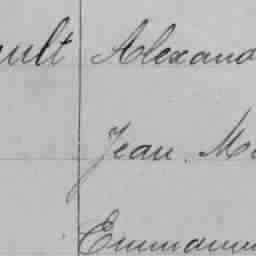 ult Alexand
Jean Ma
Emmanue